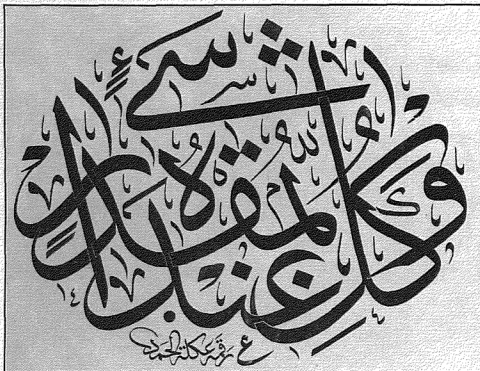 وَكُلُّ شَيْءٍ عِنْدَهُ بِمِقْدَارٍ
رقمه عكلة الحمد